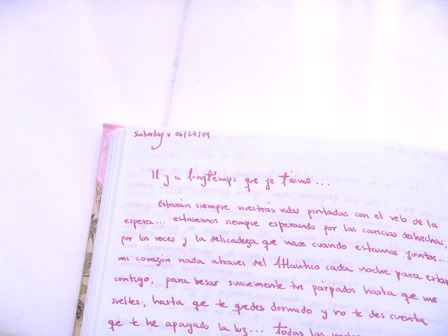 Saturday * 06/27/09
Il y a longtemps que je t'aime...
estarán siempre nuestras vidas pintadas con el velo de la
espera... estaremos siempre esperando por las caricias deshechas,
por las voces y la delicadeza que nace cuando estamos juntos...
mi corazón nada através del Atlántico cada noche para estar
contigo, para besar suavemente tus párpados hasta que me
sueltes, hasta que te quedes dormido y no te des cuenta
que te he apagado la luz... todas las